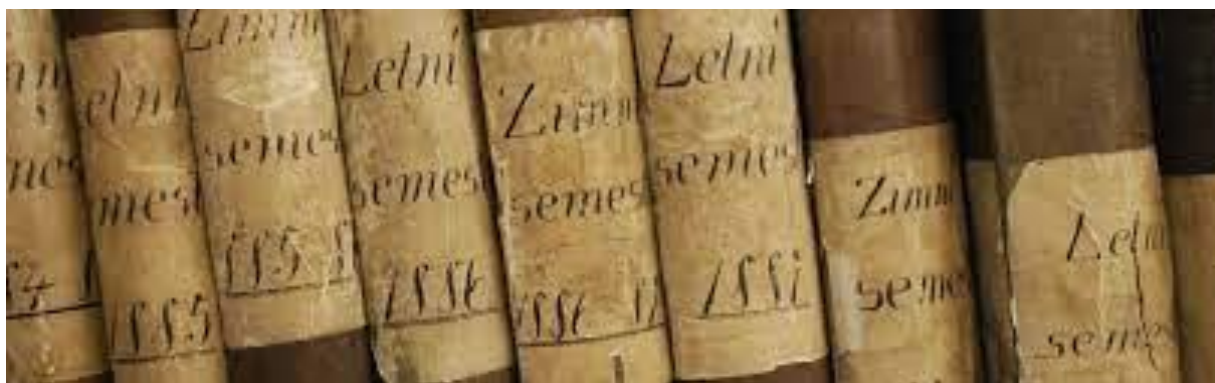 etni
mes
1885
Zimni
semes
1885
Letni
semes
1886
Zimn
semes
1886
Letni
semes
1887
Zimn
semes
Letn
semes